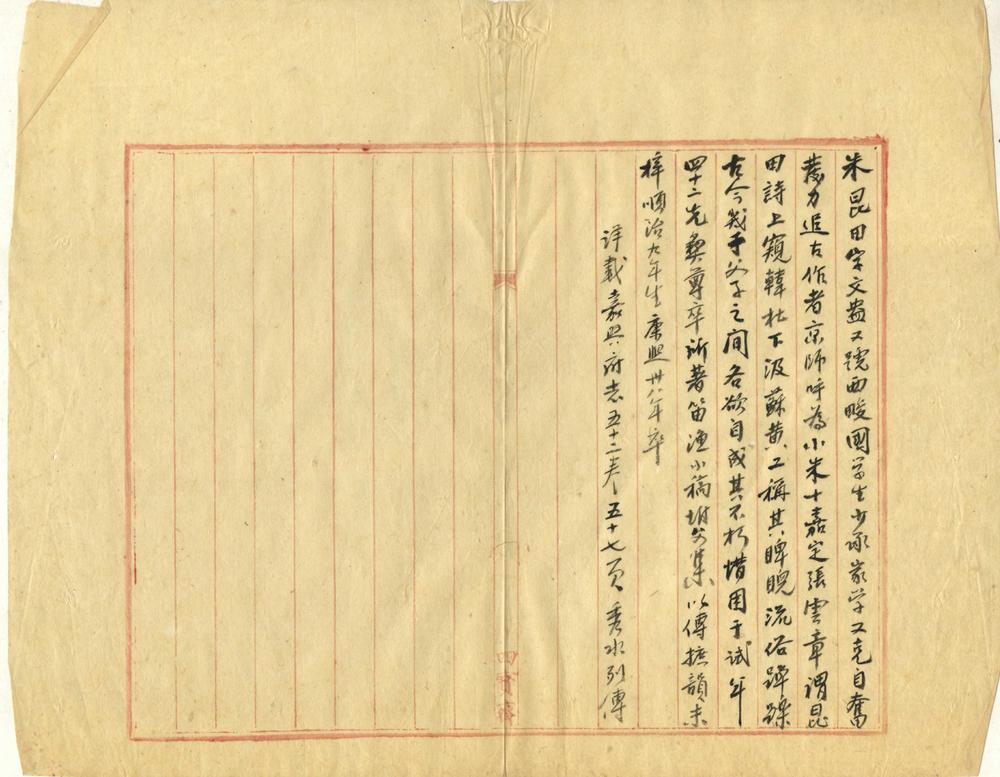 朱昆田字文盎又號西畯國學生少承家學又克自奮
發力追古作者京師呼為小朱十嘉定張雲章謂昆
田詩上窺韓杜下汲蘇黄又稱其睥睨流俗蹕躒
古今幾乎父子之間各欲自成其不朽惜困于試年
四十二先彝尊卒所著笛漁小稿坿父集以傳摭韻未
梓順治九年生康熙卅八年卒
详載嘉興府志五十二卷五十七頁 秀水列傳